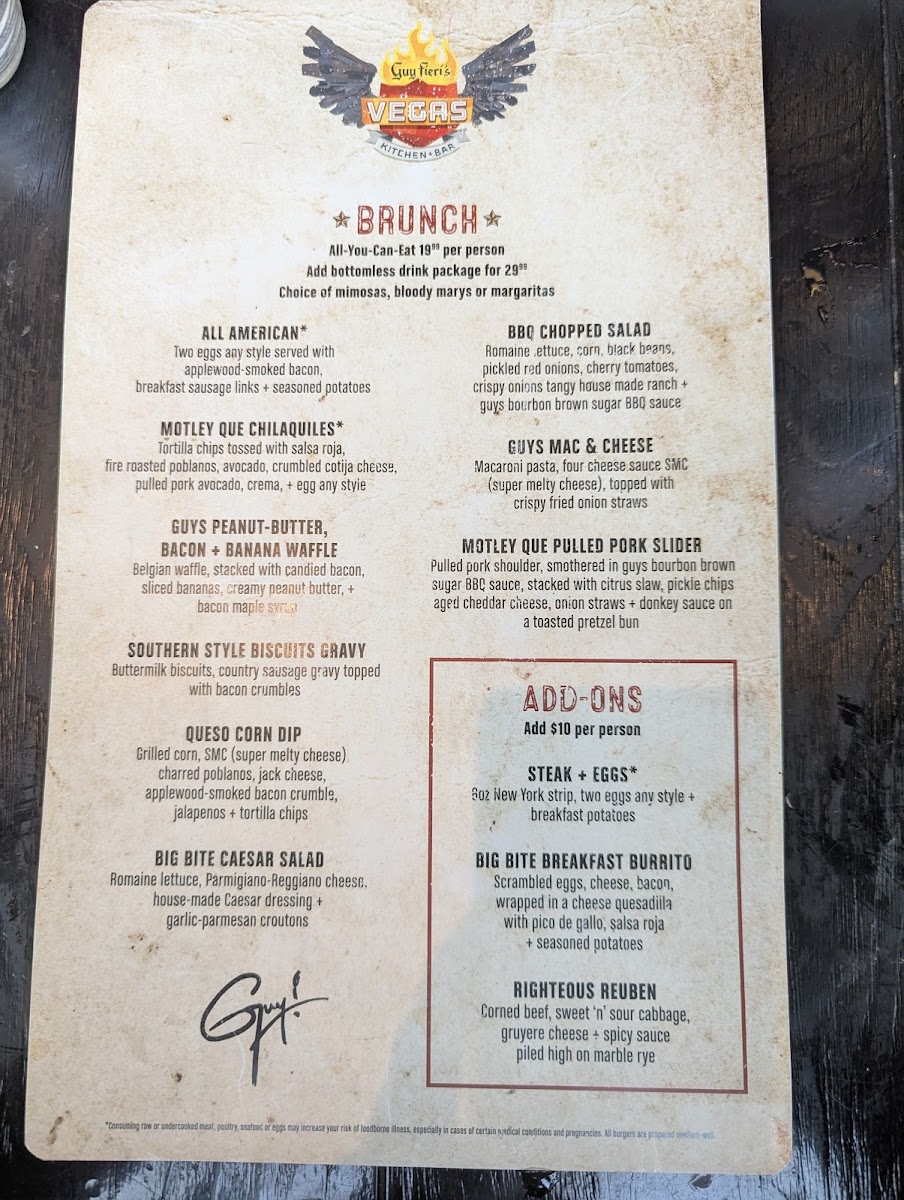 Guy Fieri's
VEGAS
KITCHEN + BAR
BRUNCH
All-You-Can-Eat 19⁹⁹ per person
Add bottomless drink package for 29⁹⁹
Choice of mimosas, bloody marys or margaritas
ALL AMERICAN*
Two eggs any style served with
applewood-smoked bacon,
breakfast sausage links + seasoned potatoes
MOTLEY QUE CHILAQUILES*
Tortilla chips tossed with salsa roja,
fire roasted poblanos, avocado, crumbled cotija cheese,
pulled pork avocado, crema, + egg any style
GUYS PEANUT-BUTTER,
BACON + BANANA WAFFLE
Belgian waffle, stacked with candied bacon,
sliced bananas, creamy peanut butter, +
bacon maple syrup
SOUTHERN STYLE BISCUITS GRAVY
Buttermilk biscuits, country sausage gravy topped
with bacon crumbles
QUESO CORN DIP
Grilled corn, SMC (super melty cheese)
charred poblanos, jack cheese,
applewood-smoked bacon crumble,
jalapenos + tortilla chips
BIG BITE CAESAR SALAD
Romaine lettuce, Parmigiano-Reggiano cheese,
house-made Caesar dressing +
garlic-parmesan croutons
Guy!
BBQ CHOPPED SALAD
Romaine lettuce, corn, black beans,
pickled red onions, cherry tomatoes,
crispy onions tangy house made ranch +
guys bourbon brown sugar BBQ sauce
GUYS MAC & CHEESE
Macaroni pasta, four cheese sauce SMC
(super melty cheese), topped with
crispy fried onion straws
MOTLEY QUE PULLED PORK SLIDER
Pulled pork shoulder, smothered in guys bourbon brown
sugar BBQ sauce, stacked with citrus slaw, pickle chips
aged cheddar cheese, onion straws + donkey sauce on
a toasted pretzel bun
ADD-ONS
Add $10 per person
STEAK + EGGS*
6oz New York strip, two eggs any style +
breakfast potatoes
BIG BITE BREAKFAST BURRITO
Scrambled eggs, cheese, bacon,
wrapped in a cheese quesadilla
with pico de gallo, salsa roja
+ seasoned potatoes
RIGHTEOUS REUBEN
Corned beef, sweet 'n' sour cabbage,
gruyere cheese + spicy sauce
piled high on marble rye
*Consuming raw or undercooked meat, poultry, seafood or eggs may increase your risk of foodborne illness, especially in cases of certain medical conditions and pregnancies. All burgers are prepared medium-well.